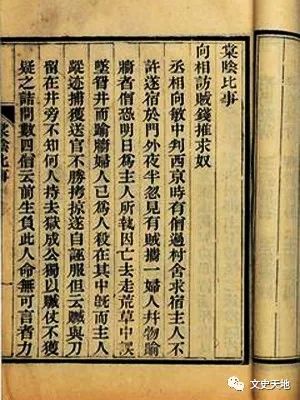 棠陰比事
向相訪賊錢推求奴
丞相向敏中判西京時有僧過村舍求宿主人不
許遂宿於門外夜半忽見有賊攜一婦人幷物踰
牆者僧恐明日爲主人所執因亡去走荒草中誤
墜眢井而踰牆婦人已爲人殺在其中旣而主人
蹤迹捕獲送官不勝拷掠遂自誣服但云贓與刀
留在井旁不知何人持去獄成公獨以贓仗不獲
疑之詰問數四僧云前生負此人命無可言者力
棠陰比事
文史天地